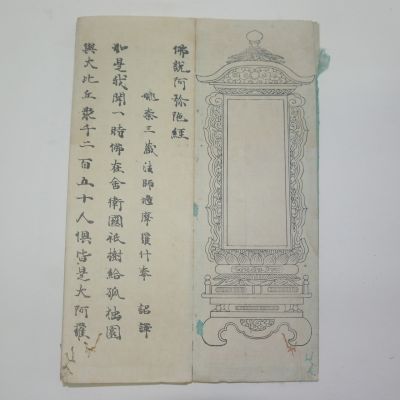 佛說阿弥陀經
姚秦三藏法師鳩摩羅什奉 詔譯
如是我聞一時佛在舍衛國祇樹給孤独園
與大比丘衆千二百五十人俱皆是大阿羅